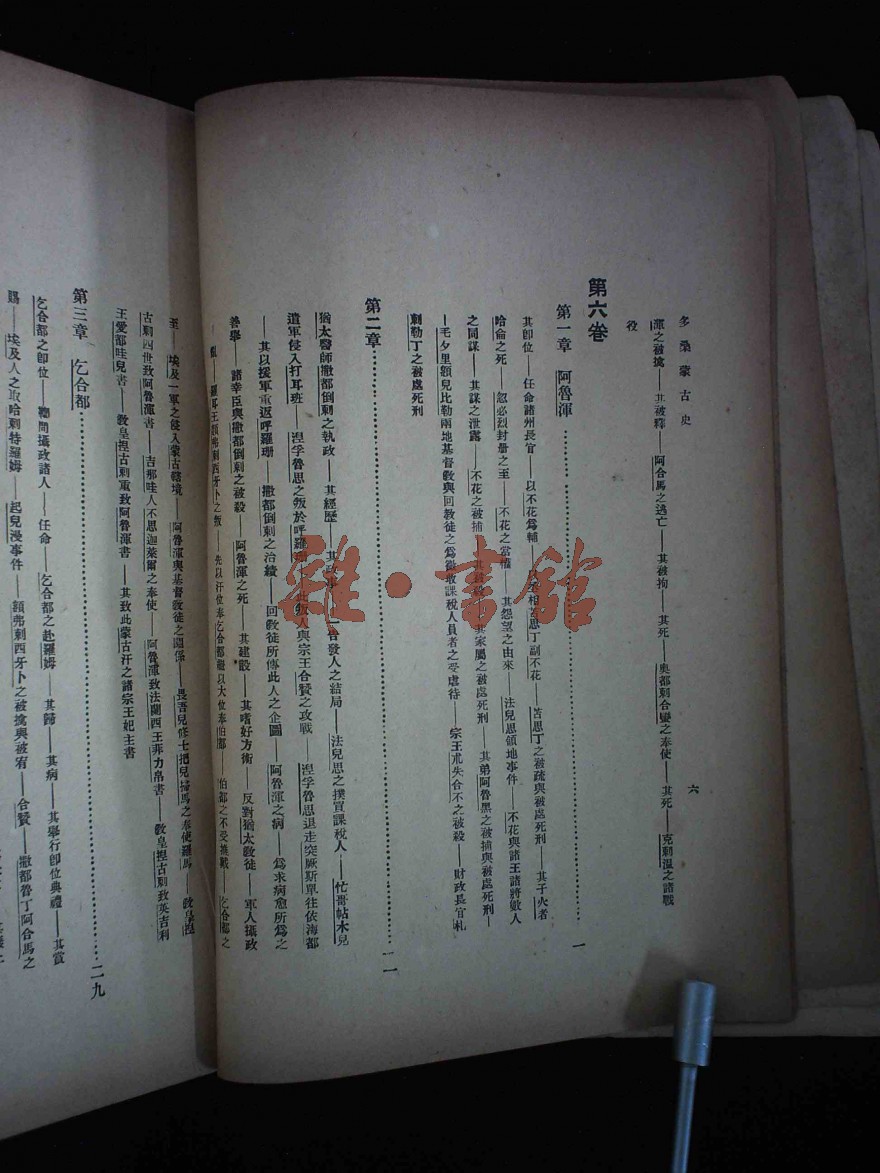 多桑蒙古史
六
渾之被擒——其被釋——阿合馬之逃亡——其被拘——其死——奥都剌合蠻之奉使——其死——克剌溫之諸戰
役
第六卷
第一章 阿魯渾 一
其卽位——任命諸州長官——以不花爲輔 相 思丁副不花——苫思丁之被疏與被處死刑——其子火者
哈侖之死——忽必烈封册之至——不花之當權——其怨望之由來 法兒思領地事件——不花與諸王諸將數人
之同謀——其謀之泄露——不花之被捕——其被殺——其家屬之被處死刑 其弟阿魯黑之被捕與被處死刑—
—毛夕里額兒比勒兩地基督教與回教徒之爲徵收課稅人員者之受虐待——宗王朮失合不之被殺——財政長官札
剌勒丁之被處死刑
第二章 二一
猶太醫師撒都倒剌之執政——其經歷——其政 告發人之結局——法兒思之撲買課稅人——忙哥帖木兒
遣軍侵入打耳班——涅孚魯思之叛於呼羅珊 此叛人與宗王合贊之攻戰——涅孚魯思退走突厥斯單往依海都
——其以援軍重返呼羅珊——撒都倒剌之治績——回教徒所傳此人之企圖——阿魯渾之病——爲求病愈所爲之
善舉——諸幸臣與撒都倒剌之被殺——阿魯渾之死 其建設——其嗜好方術——反對猶太教徒——軍人攝政
羅耳王額弗剌西牙卜之叛 先以汗位奉乞合都繼以大位奉伯都——伯都之不受推戴——乞合都之
至——埃及一軍之侵入蒙古轄境——阿魯渾與基督教徒之關係——畏吾兒修士把兒掃馬之奉使羅馬——教皇捏
古剌四世致阿魯渾書——吉那哇人不思迦萊爾之奉使——阿魯渾致法蘭西王菲力帛書——教皇捏古剌致英吉利
王愛都哇兒書——教皇捏古剌重致阿魯渾書——其致此蒙古汗之諸宗王妃主書
第三章 乞合都 二九
乞合都之卽位——鞫問攝政諸人——任命——乞合都之赴羅姆——其歸——其病——其舉行卽位典禮——其賞
賜——埃及人之取哈剌特羅姆——起兒漫事件——額弗剌西牙卜之被擒與被宥——合贊——撒都魯丁阿合馬之
雜·書館